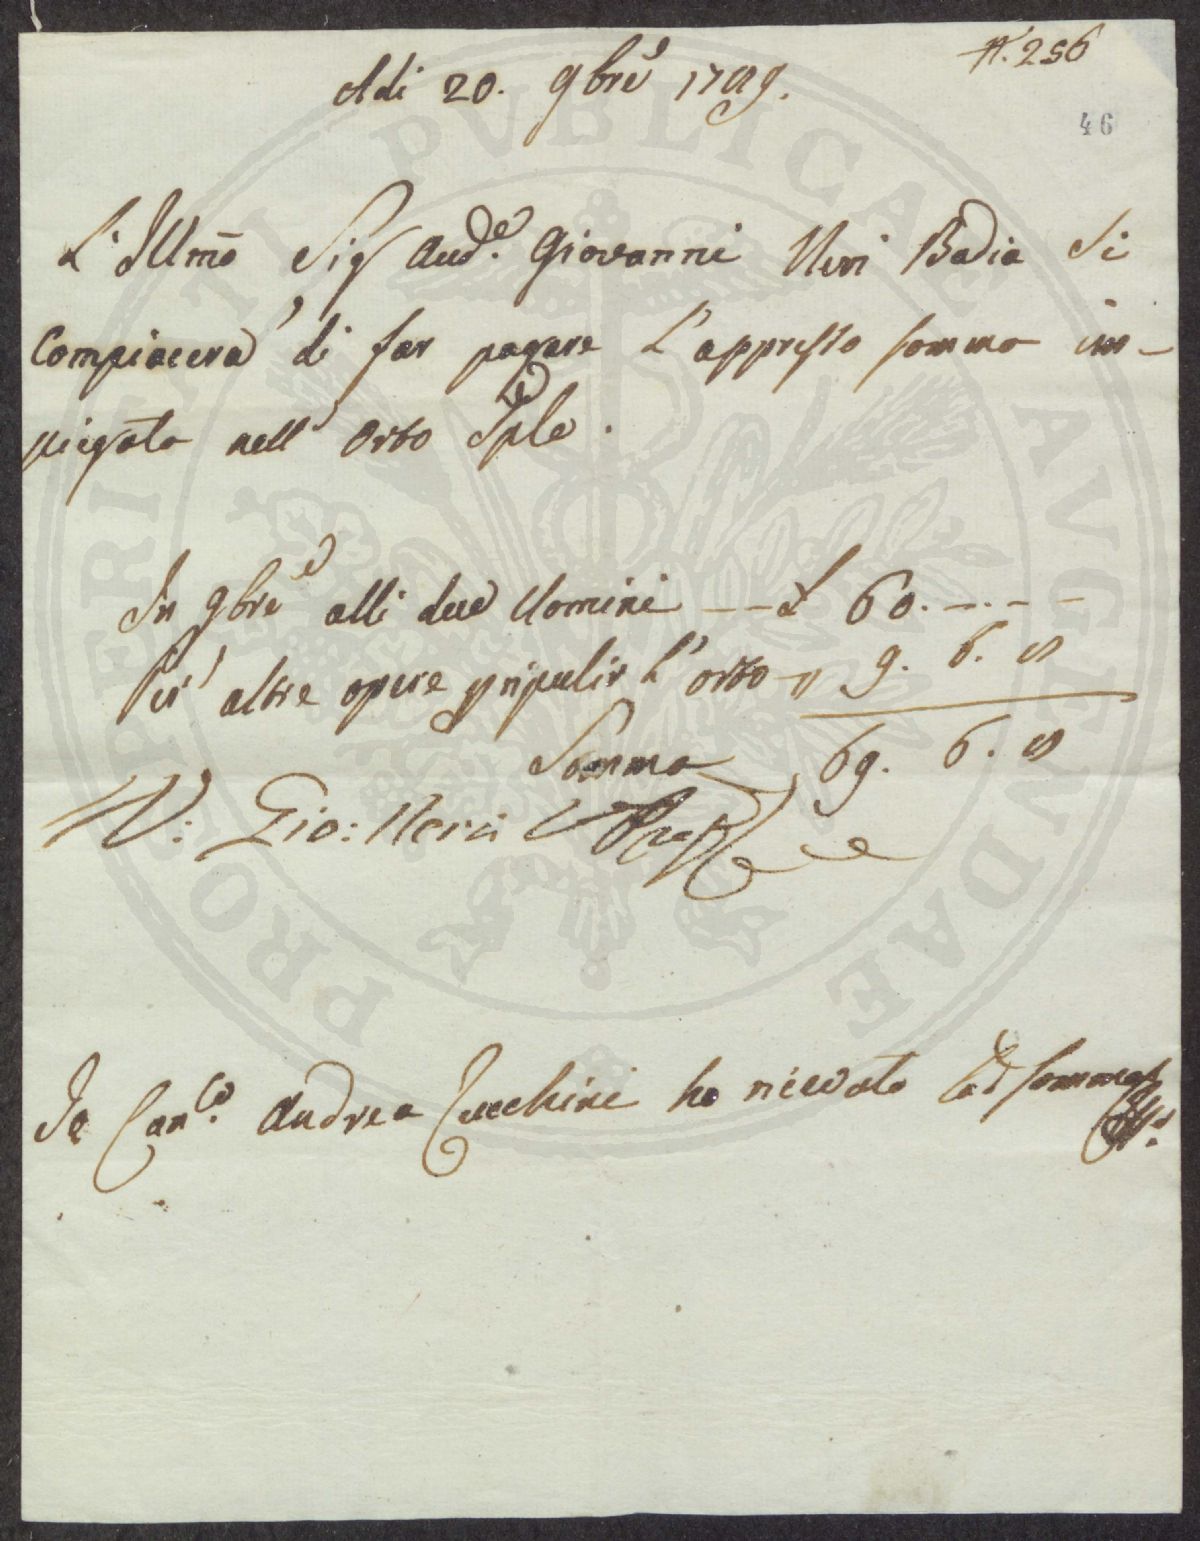 N. 256
Adi 20. 9bre 1789.
46
L'Illmo Sig Aud.e Giovanni Neri Badia Si
Compiacerà di far pagare l'appresso somma im-
piegata nell'Orto Sple.
In 9bre alli due Uomini --- £ 60. - - -
Per altre opere p ripulir l'orto - " 9. 6. 8
Somma 69. 6. 8
V: Gio: Neri
Io Can.co Andrea Zucchini ho ricevuto la d somma
PROSPERITATI PVBLICAE AVGENDAE